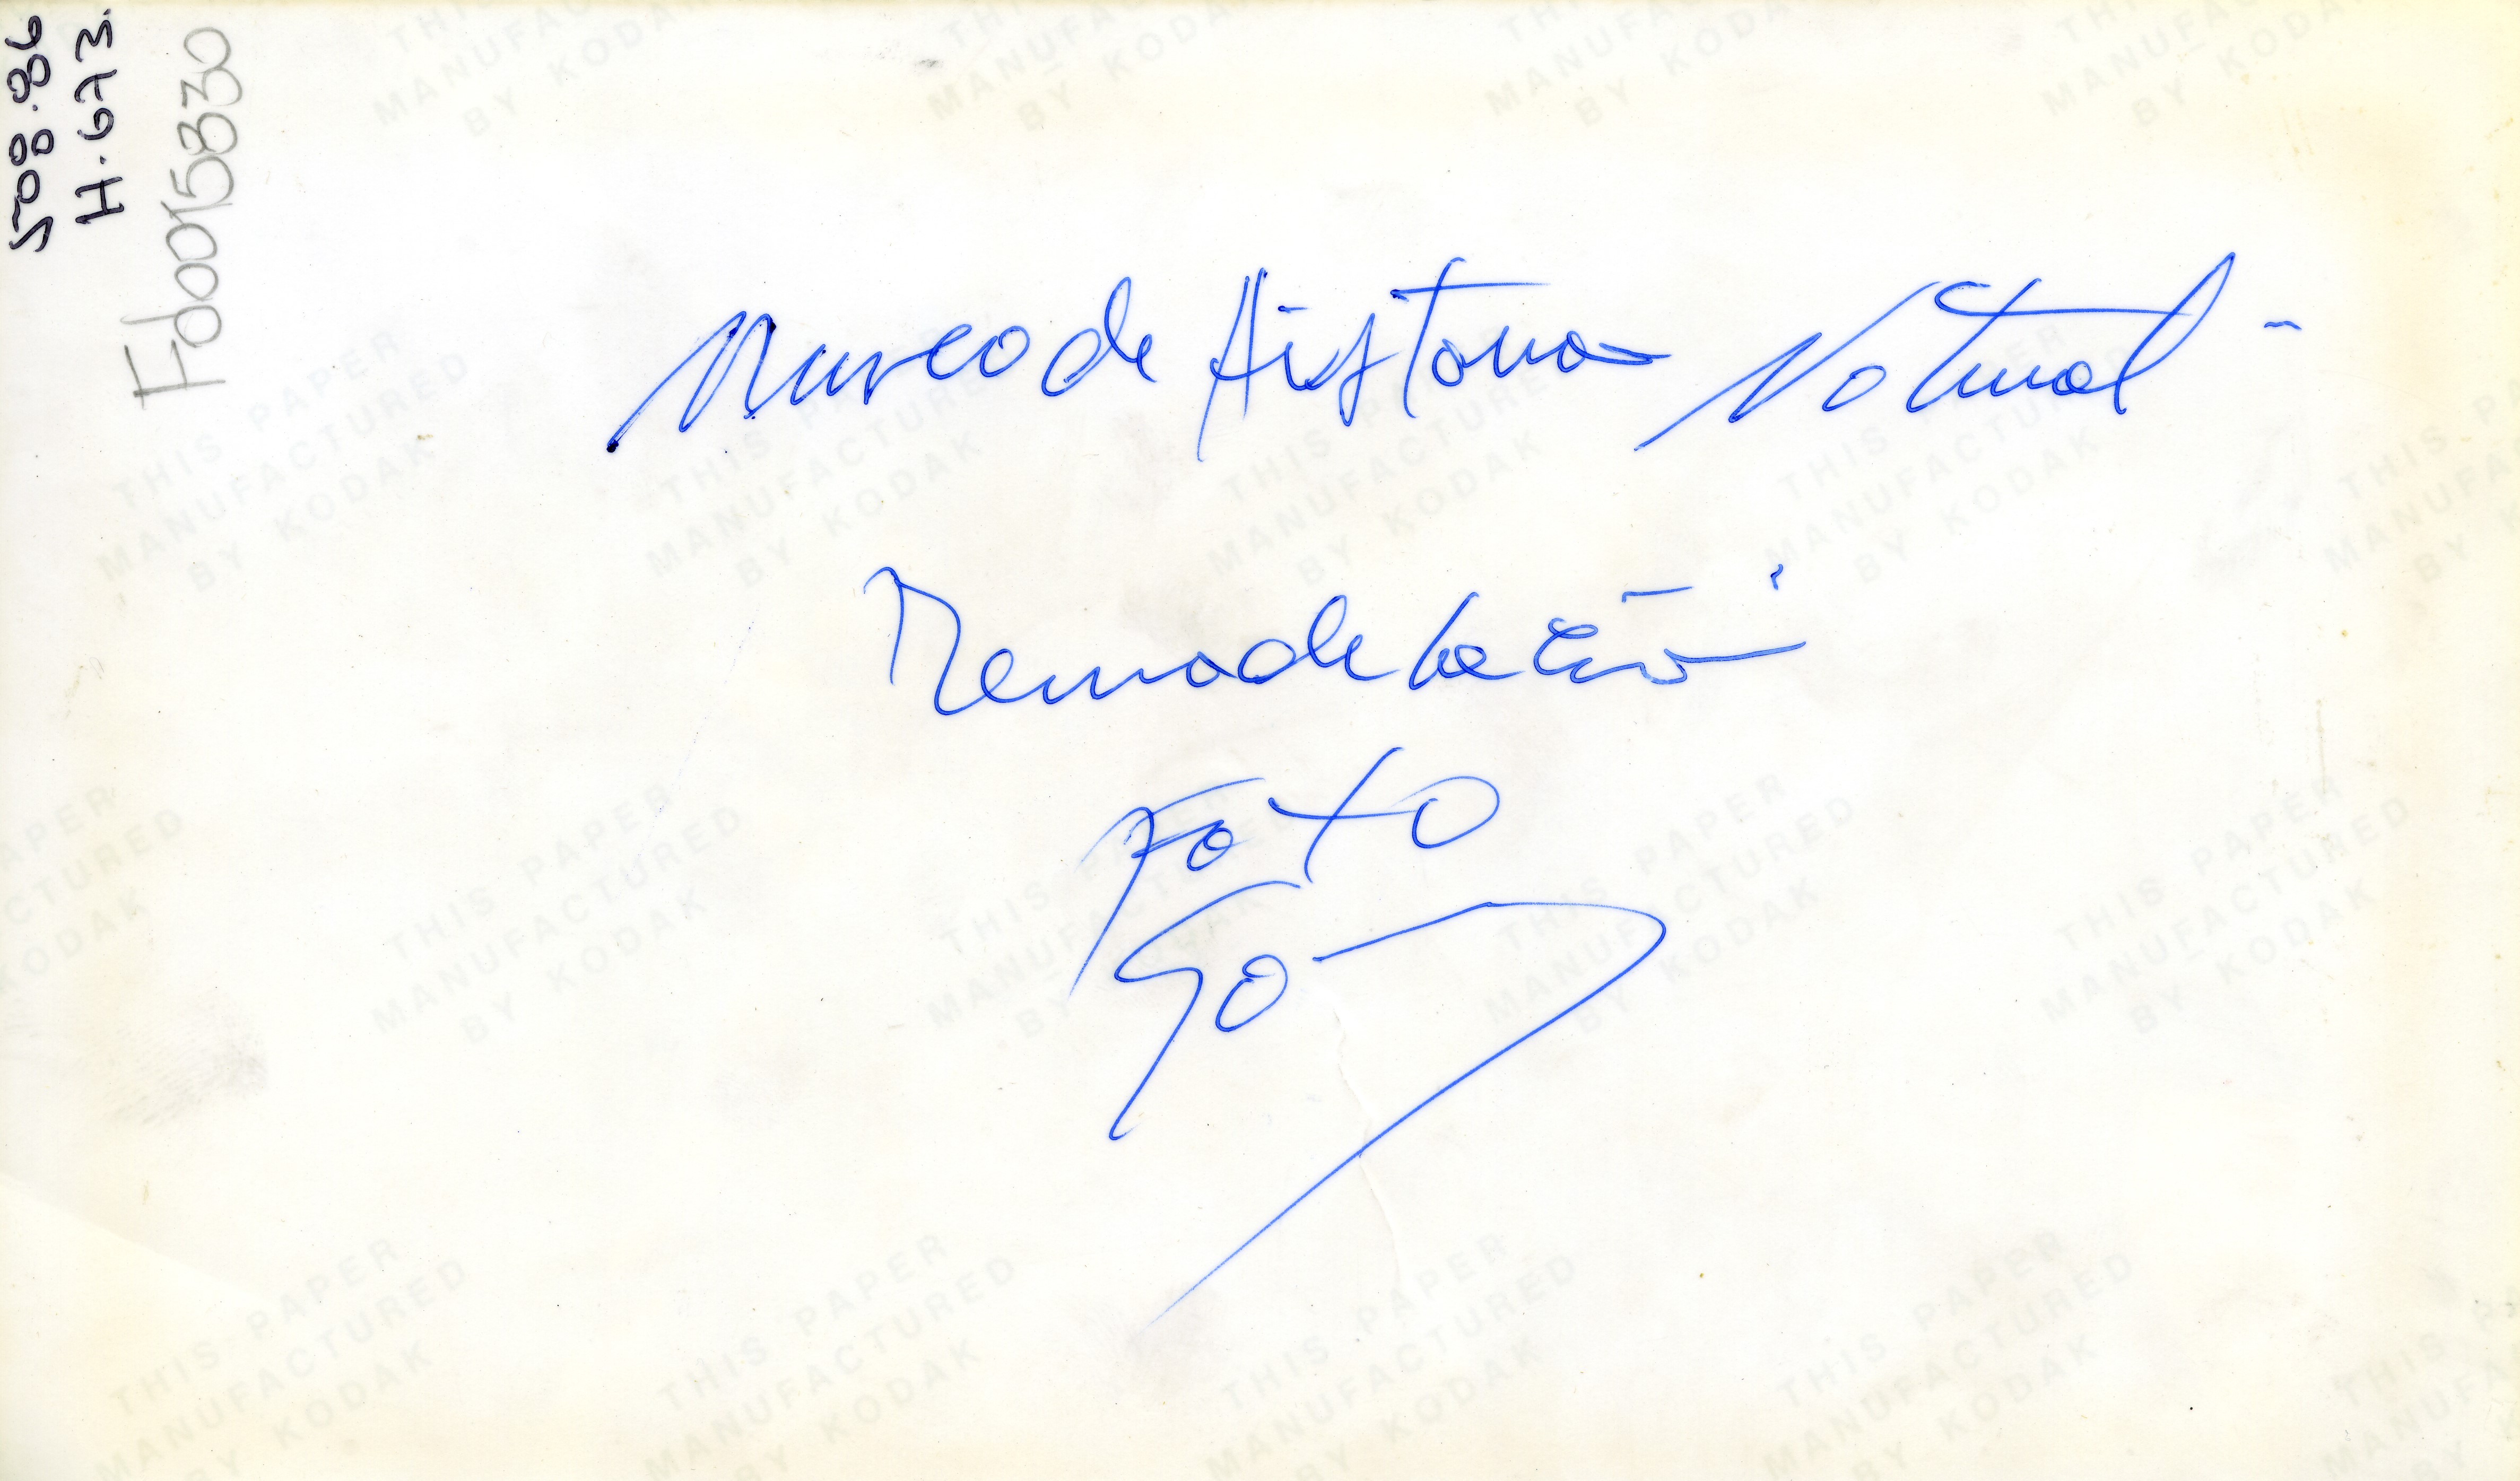 508.86
H.673.
Fd0015830
Museo de Historia Natural
Remodelación
Foto
THIS PAPER
MANUFACTURED
BY KODAK